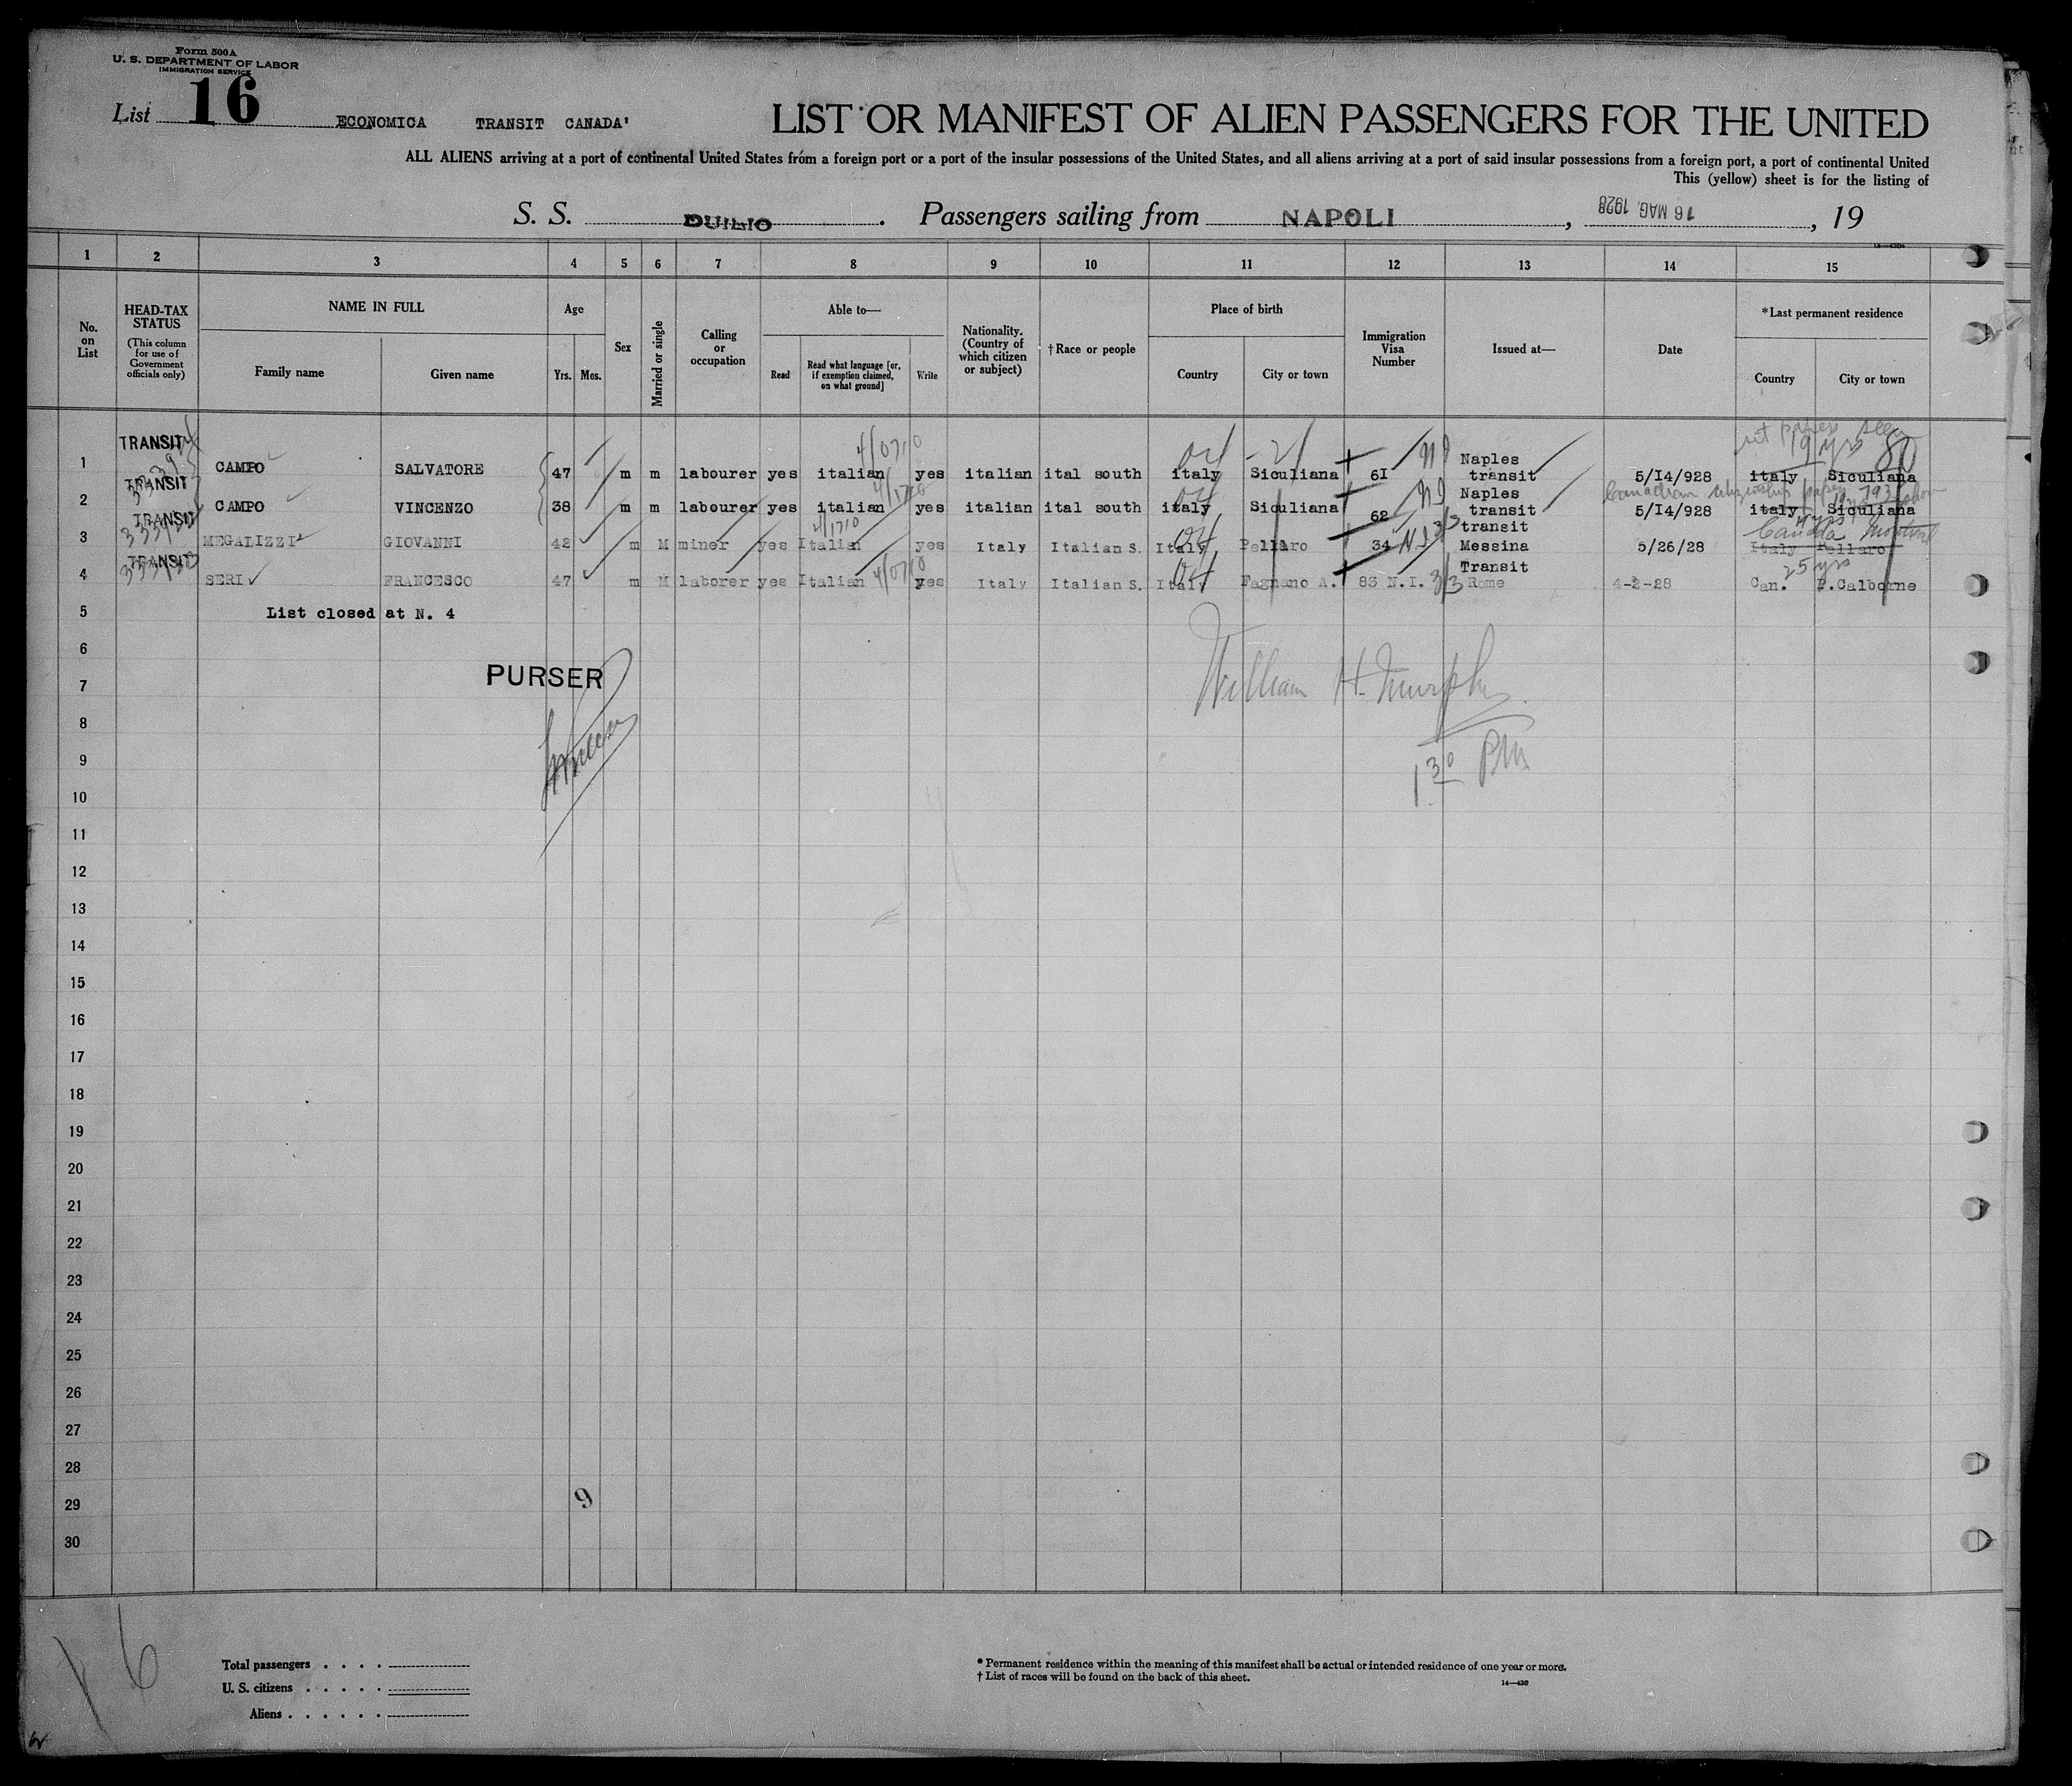 Form 500A
U. S. DEPARTMENT OF LABOR
IMMIGRATION SERVICE
List 16 ECONOMICA TRANSIT CANADA'
LIST OR MANIFEST OF ALIEN PASSENGERS FOR THE UNITED
ALL ALIENS arriving at a port of continental United States from a foreign port or a port of the insular possessions of the United States, and all aliens arriving at a port of said insular possessions from a foreign port, a port of continental United
This (yellow) sheet is for the listing of
S. S. DUILIO. Passengers sailing from NAPOLI, 16 MAG. 1928, 19
1 2 3 4 5 6 7 8 9 10 11 12 13 14 15
No. on List
HEAD-TAX STATUS
(This column for use of Government officials only)
NAME IN FULL
Family name Given name
Age
Yrs. Mos.
Sex
Married or single
Calling or occupation
Able to—
Read
Read what language [or, if exemption claimed, on what ground]
Write
Nationality. (Country of which citizen or subject)
†Race or people
Place of birth
Country City or town
Immigration Visa Number
Issued at—
Date
*Last permanent residence
Country City or town
19 yrs
1 TRANSIT CAMPO SALVATORE 47 m m labourer yes italian yes italian ital south italy Siculiana 61 Naples transit 5/14/928 italy Siculiana
Canadian citizenship
2 TRANSIT CAMPO VINCENZO 38 m m labourer yes italian yes italian ital south italy Siculiana 62 Naples transit 5/14/928 italy Siculiana
Canada Montreal
3 TRANSIT MEGALIZZI GIOVANNI 42 m M miner yes Italian yes Italy Italian S. Italy Pellaro 34 N.I. transit Messina 5/26/28 Italy Pellaro
25 yrs
4 TRANSIT SERI FRANCESCO 47 m M laborer yes Italian yes Italy Italian S. Italy Fagnano A. 83 N.I. 3/3 Transit Rome 4-2-28 Can. P.Calborne
5 List closed at N. 4
6
PURSER
7
William H. Murphy
8
9
1 30 PM
10
11
12
13
14
15
16
17
18
19
20
21
22
23
24
25
26
27
28
29
9
30
16
Total passengers
U. S. citizens
Aliens
* Permanent residence within the meaning of this manifest shall be actual or intended residence of one year or more.
† List of races will be found on the back of this sheet.
14—430